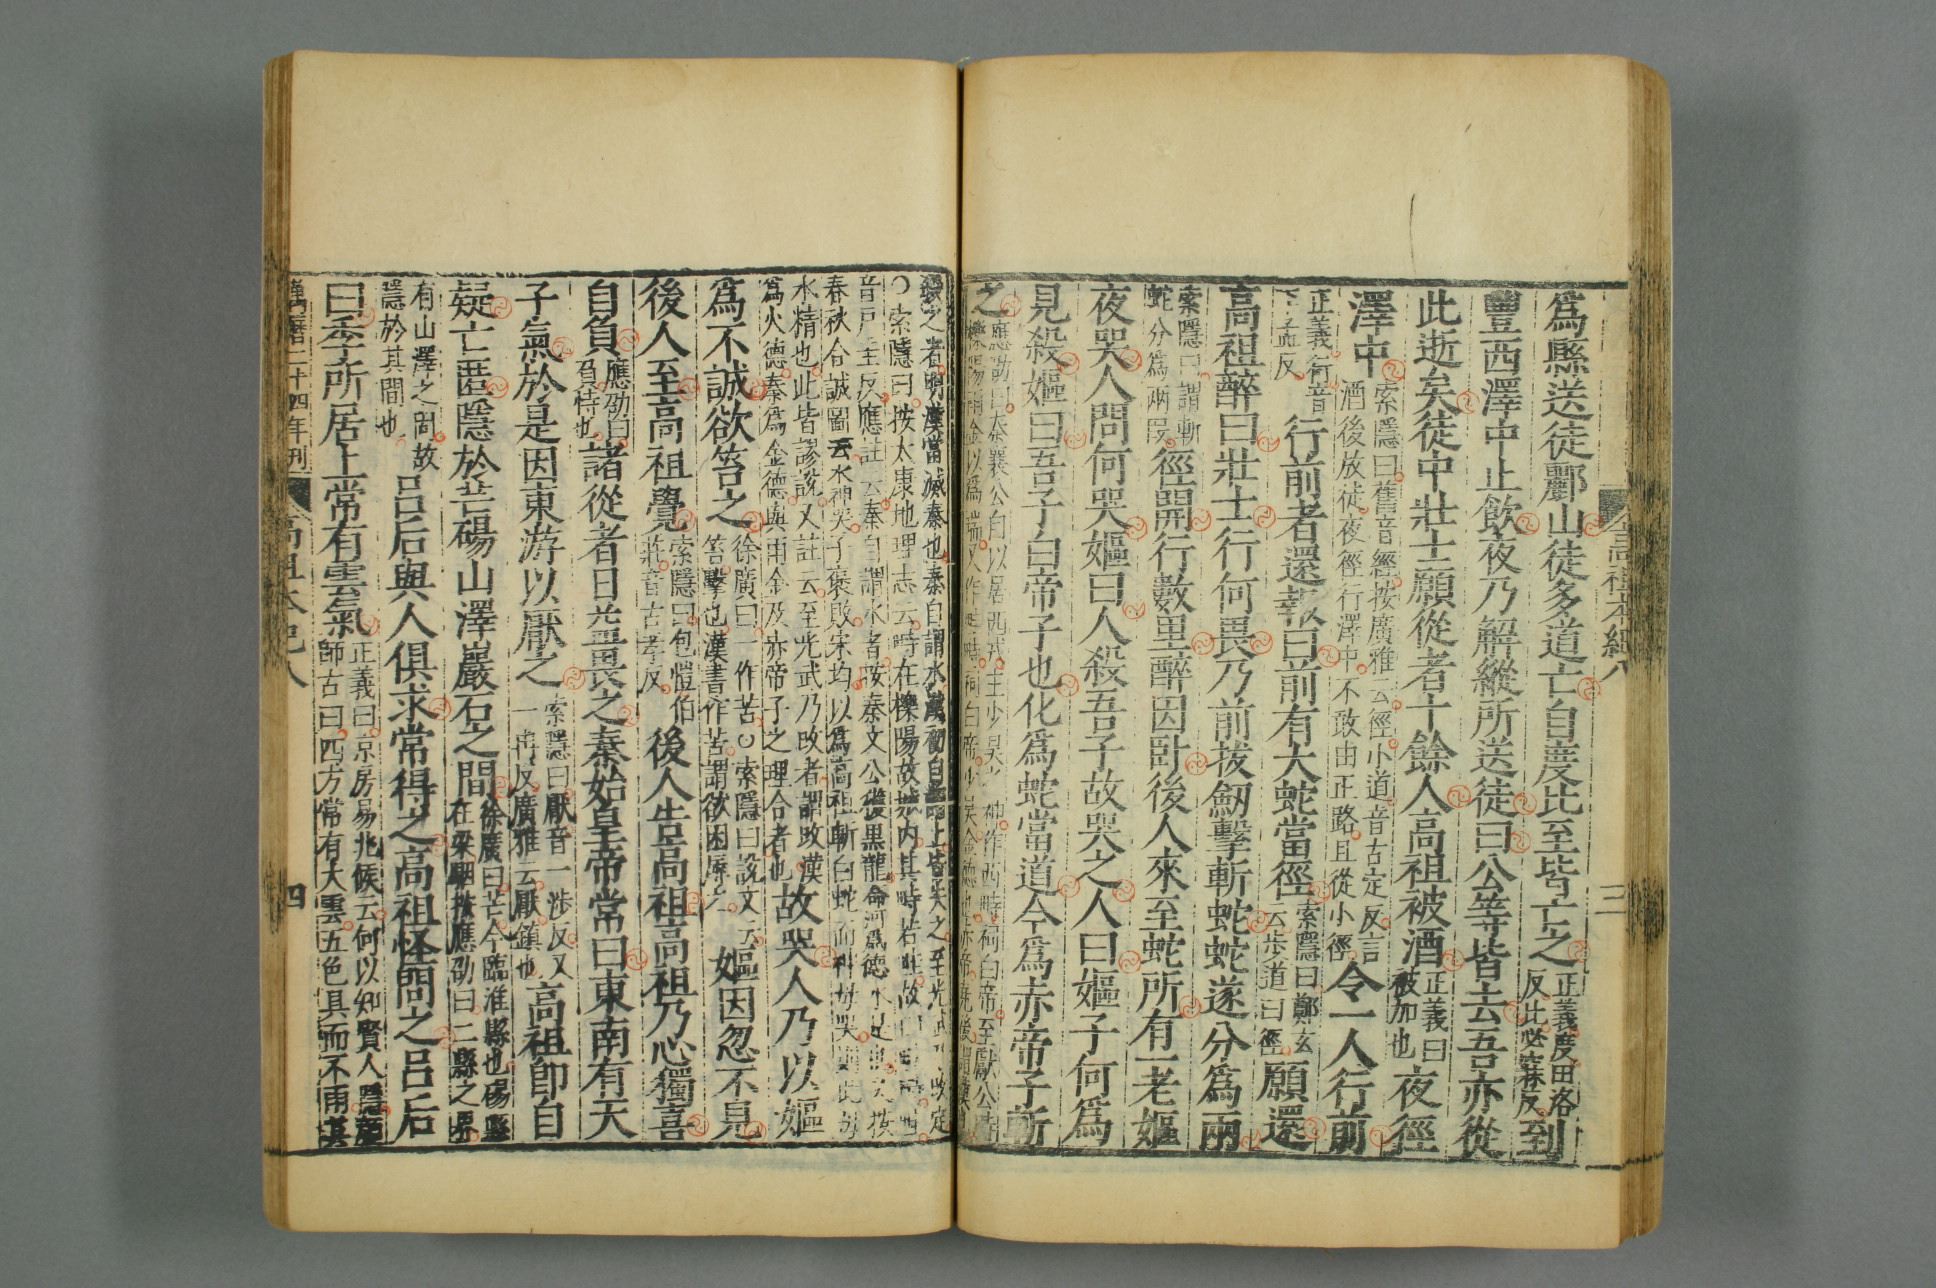 高祖本紀八
三
為縣送徒酈山徒多道亡自度比至皆亡之 正義度田洛反比必寐反 到
豐西澤中止飲夜乃解縱所送徒曰公等皆去吾亦從
此逝矣徒中壯士願從者十餘人高祖被酒 正義曰被加也 夜徑
澤中 索隱曰舊音經按廣雅云徑小道音古定反言酒後放徒夜徑行澤中不敢由正路且從小徑 令一人行前
正義行音下孟反 行前者還報曰前有大蛇當徑 索隱曰鄭玄云步道曰徑 願還
高祖醉曰壯士行何畏乃前拔劒擊斬蛇蛇遂分為兩
索隱曰謂斬蛇分為兩段 徑開行數里醉因臥後人來至蛇所有一老嫗
夜哭人問何哭嫗曰人殺吾子故哭之人曰嫗子何為
見殺嫗曰吾子白帝子也化為蛇當道今為赤帝子斬
之 應劭曰秦襄公自以居西戎主少昊之神作西畤祠白帝至獻公時櫟陽雨金以為瑞又作畦畤祠白帝少昊金德也赤帝堯後謂漢也
殺之者明漢當滅秦也秦自謂水漢初自謂土皆失之至光武乃改定
○索隱曰按太康地理志云畤在櫟陽故城內其畤若畦故
音戶圭反應註云秦自謂水者按秦文公獲黑龍命河為德水是也又按
春秋合誠圖云水神哭子褒敗宋均以為高祖斬白蛇而神母哭則此母
水精也此皆謬說又註云至光武乃改者謂改漢
為火德秦為金德與雨金及赤帝子之理合者也 故哭人乃以嫗
為不誠欲笞之 徐廣曰一作苦○索隱曰說文云笞擊也漢書作苦謂欲困辱之 嫗因忽不見
後人至高祖覺 索隱曰包愷伯莊音古孝反 後人告高祖高祖乃心獨喜
自負 應劭曰負恃也 諸從者日益畏之秦始皇帝常曰東南有天
子氣於是因東游以厭之 索隱曰厭音一涉反又一冉反廣雅云厭鎮也 高祖即自
疑亡匿隱於芒碭山澤巖石之間 徐廣曰芒今臨淮縣也碭縣在梁駰按應劭曰二縣之界
有山澤之固故隱於其間也 呂后與人俱求常得之高祖怪問之呂后
曰季所居上常有雲氣 正義曰京房易兆候云何以知賢人隱顏師古曰四方常有大雲五色具而不雨其
萬曆二十四年刊
高祖本紀八
四